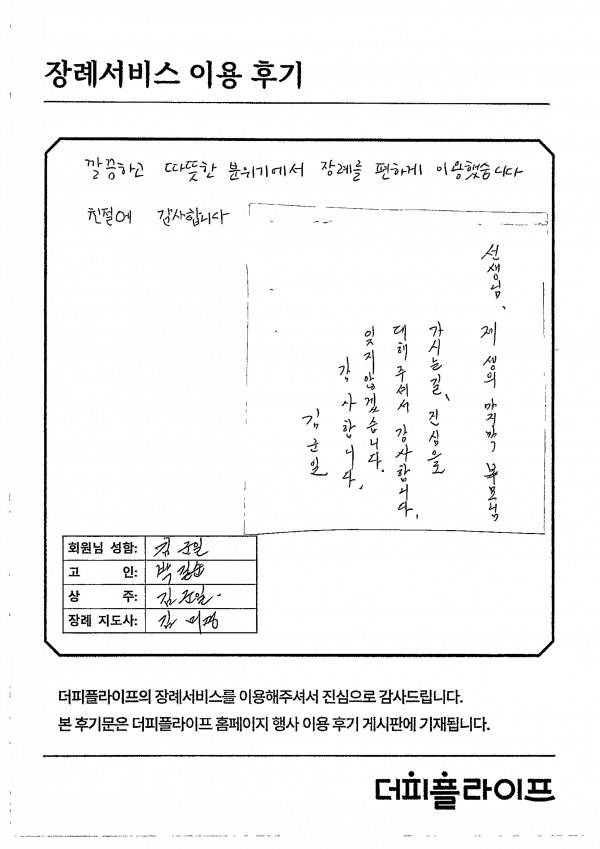 장례서비스 이용 후기
깔끔하고 따뜻한 분위기에서 장례를 편하게 이용했습니다
친절에 감사합니다
선생님, 제 생의 마지막 부모님
가시는길, 진심으로
대해주셔서 감사합니다.
잊지않겠습니다.
감사합니다.
김군일
회원님 성함: 김군일
고 인: 박
상 주: 김
장례 지도사: 김
더피플라이프의 장례서비스를 이용해주셔서 진심으로 감사드립니다.
본 후기문은 더피플라이프 홈페이지 행사 이용 후기 게시판에 기재됩니다.
더피플라이프